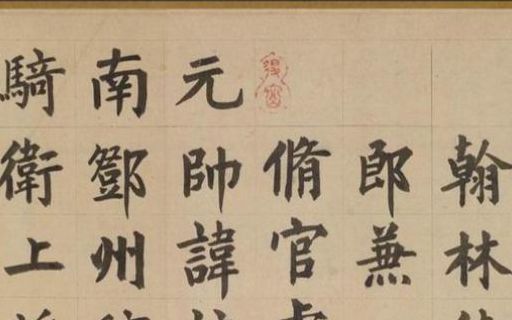 翰林
郎兼
脩官
元帥諱
南鄧州
騎衛上